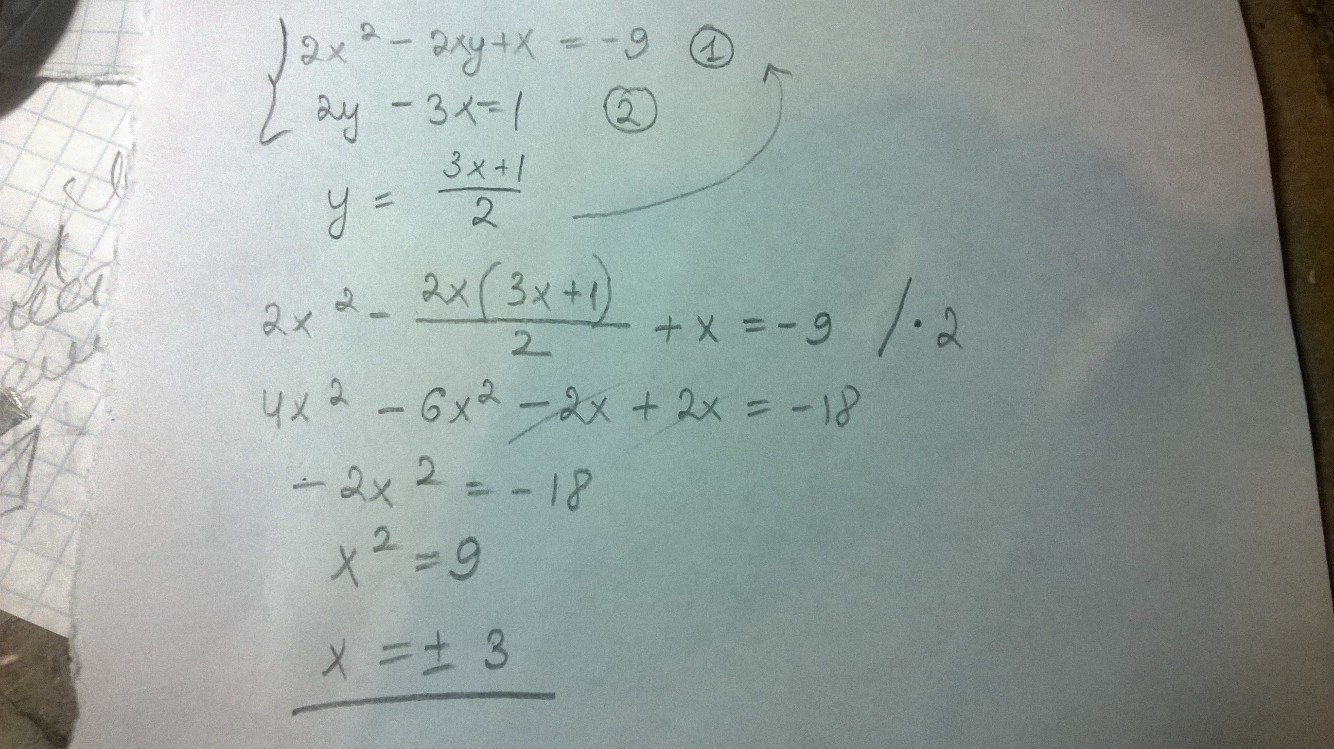 2x² - 2xy + x = -9 ①
2y - 3x = 1 ②
y = (3x+1)/2
2x² - 2x(3x+1)/2 + x = -9 /·2
4x² - 6x² - 2x + 2x = -18
-2x² = -18
x² = 9
x = ± 3